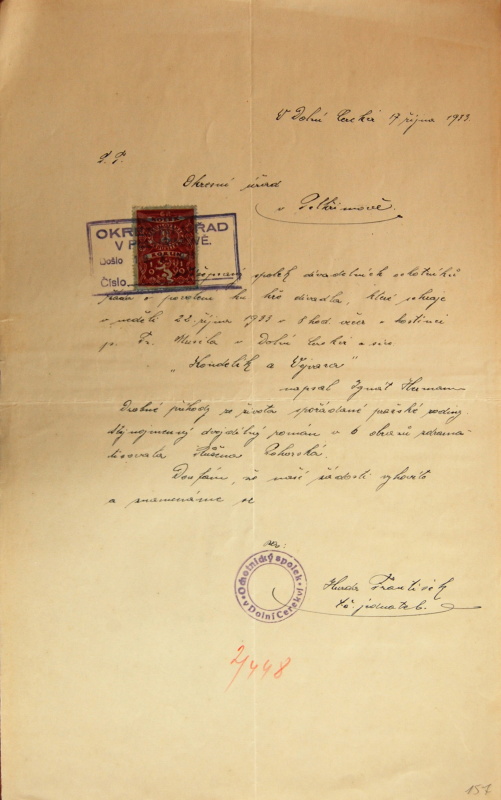 V Dolní Cerekvi 17 října 1933.
P. T.
Okresní úřad
v Pelhřimově.
OKRESNÍ ÚŘAD
V PELHŘIMOVĚ.
Došlo
Číslo
spolek divadelních ochotníků
o povolení ku hře divadla, které sehraje
v neděli 22. října 1933 v 8 hod. večer v hostinci
p. Fr. Musila v Dolní Cerekvi a sice
„Kondelík a Vejvara"
napsal Ignát Herrman
Drobné příhody ze života spořádané pražské rodiny
dvojdílný román v 6 obrazů zdrama-
tisovala Růžena Pohorská.
Doufám, že naší žádosti vyhovíte
a znamenáme se
Ochotnický spolek
v Dolní Cerekvi
František
t.č. jednatel.
2/448
157